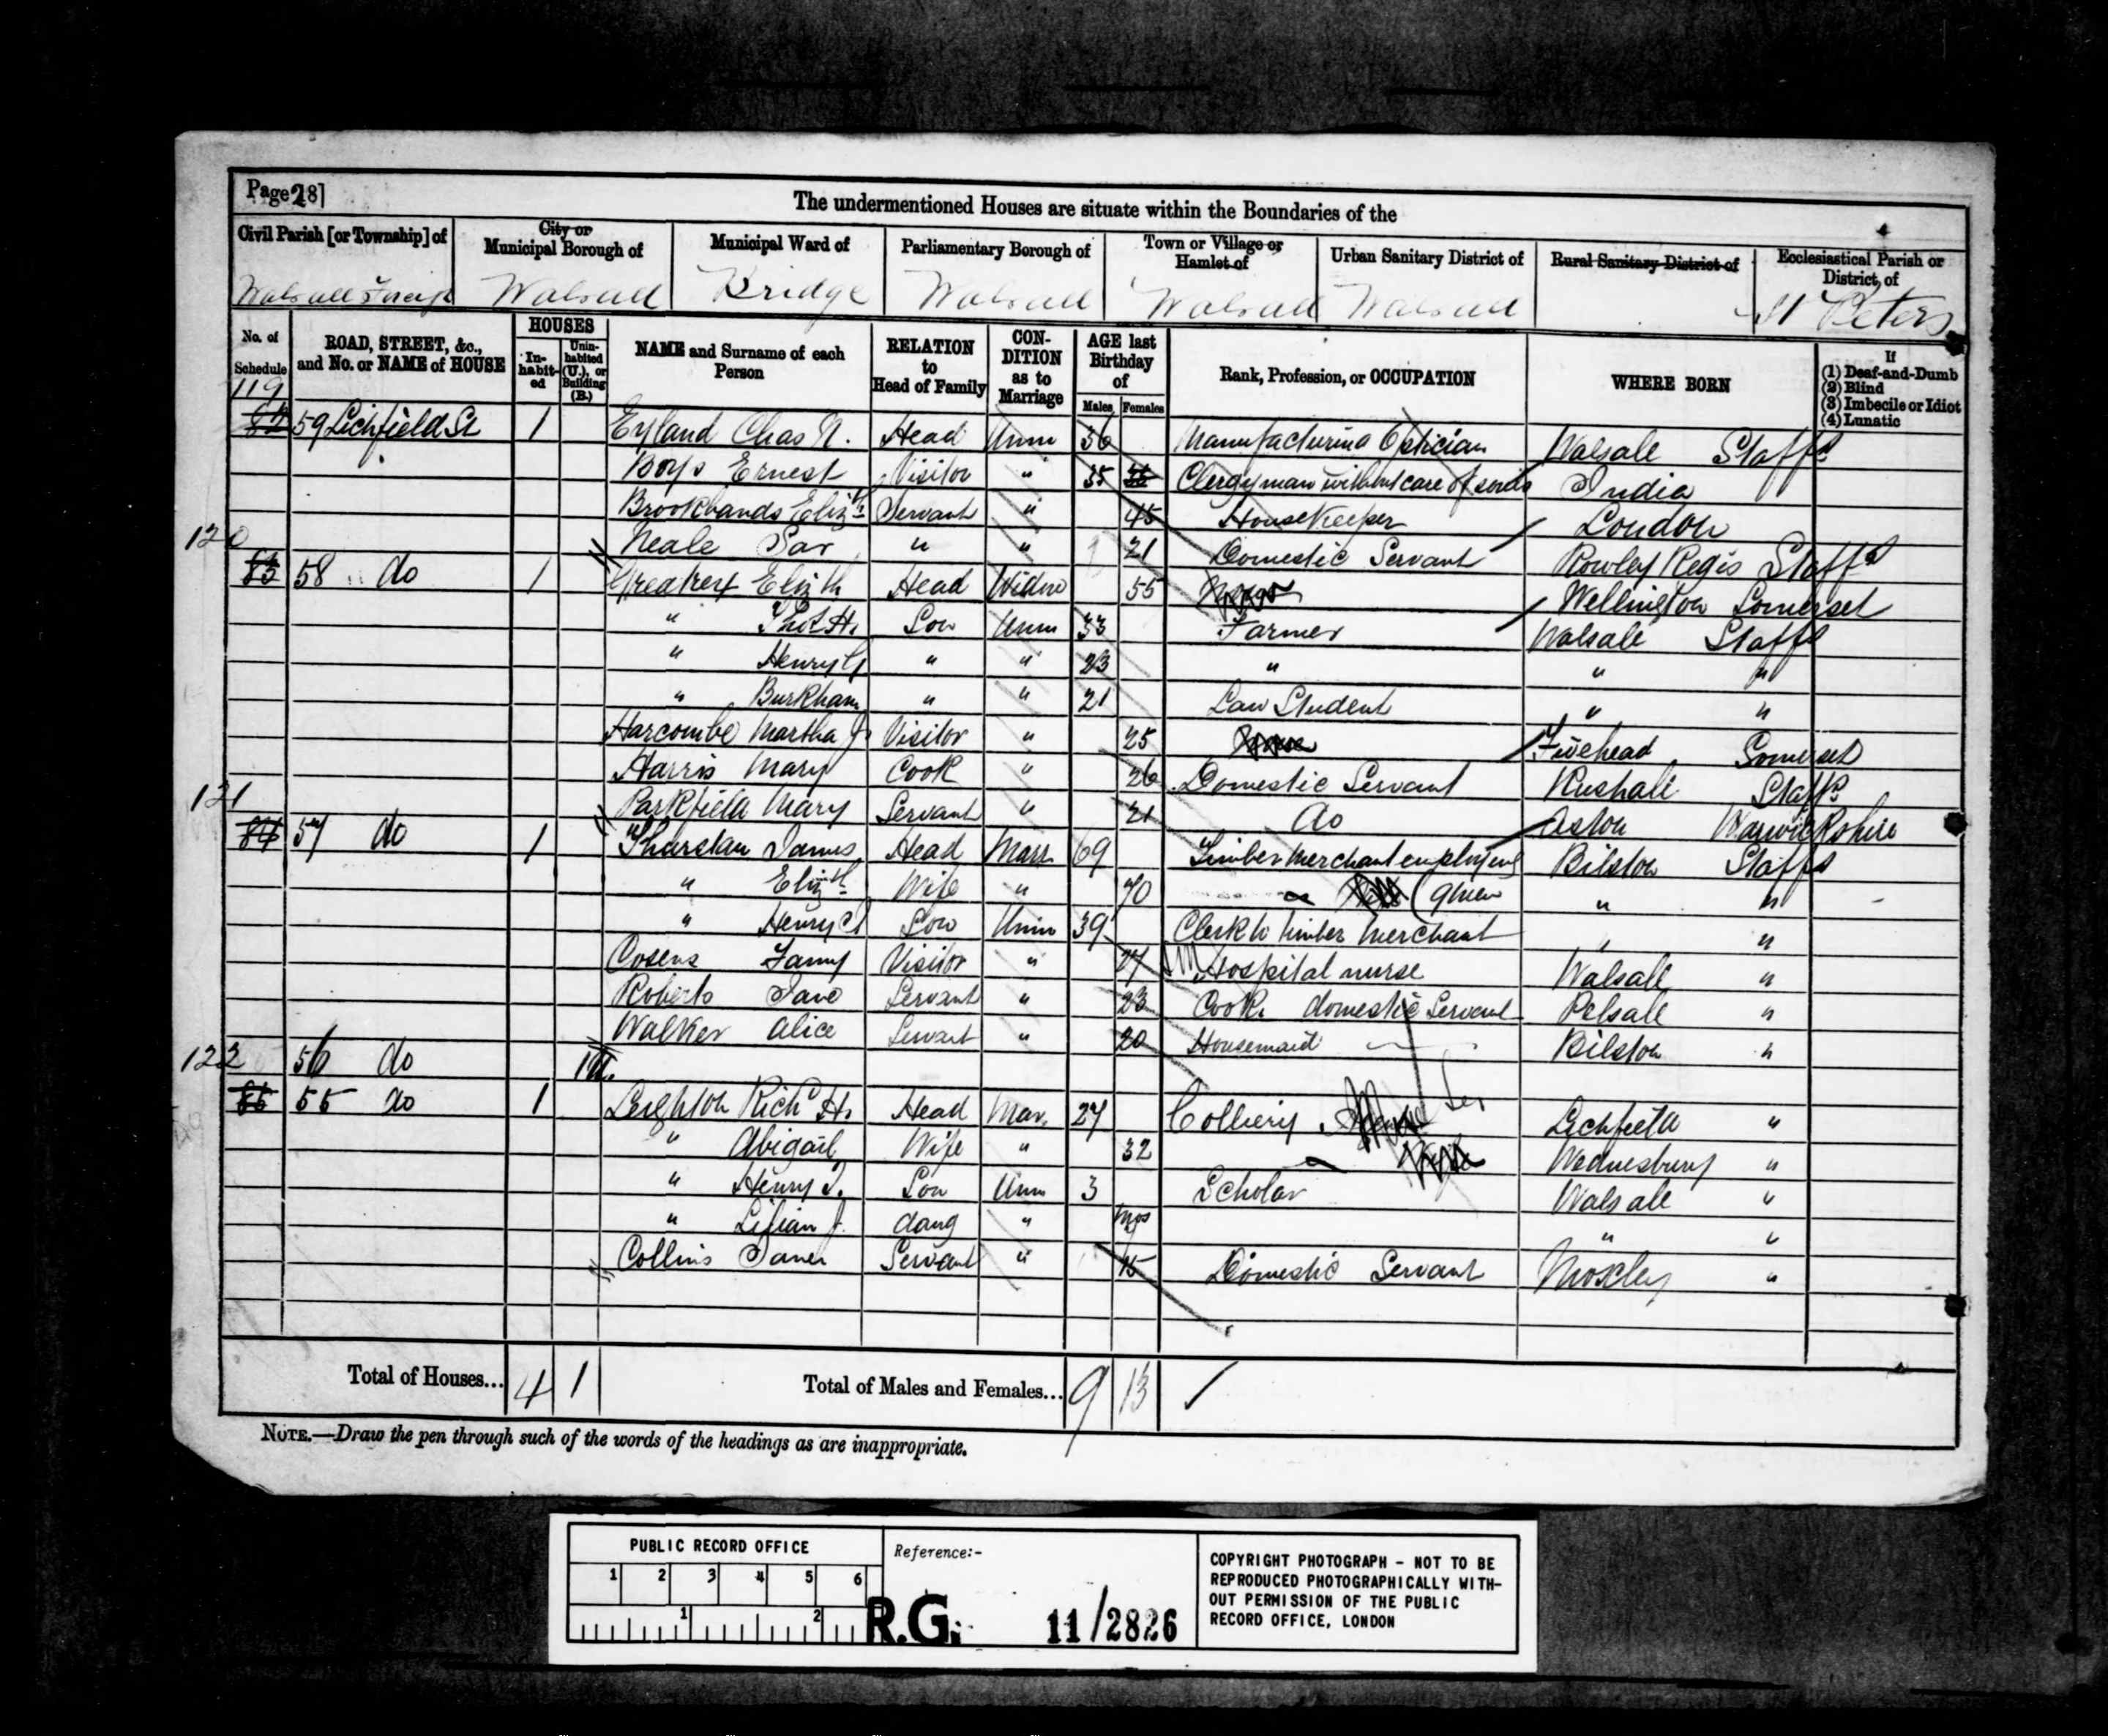 Page 28]
The undermentioned Houses are situate within the Boundaries of the
Civil Parish [or Township] of
City or Municipal Borough of
Municipal Ward of
Parliamentary Borough of
Town or Village or Hamlet of
Urban Sanitary District of
Rural Sanitary District of
Ecclesiastical Parish or District of
Walsall Walsall Bridge Walsall Walsall Walsall St Peters
No. of Schedule
ROAD, STREET, &c., and No. or NAME of HOUSE
HOUSES
In-habit-ed
Unin-habited (U.), or Building (B.)
NAME and Surname of each Person
RELATION to Head of Family
CON-DITION as to Marriage
AGE last Birthday of
Males Females
Rank, Profession, or OCCUPATION
WHERE BORN
If
(1) Deaf-and-Dumb
(2) Blind
(3) Imbecile or Idiot
(4) Lunatic
119
59 Lichfield St 1 Eyland Chas N. Head Unm 36 Manufacturing Optician Walsall Staffs
Boys Ernest Visitor " 35 Clergyman without care of souls India
Brookbands Elizth Servant " 45 Housekeeper London
120
Neale Sar " " 21 Domestic Servant Rowley Regis Staffs
83 58 do 1 Greatrex Elizth Head Widow 55 Wellington Somerset
" Thos H. Son Unm 33 Farmer Walsall Staffs
" Henry G " " 23 " " "
" Burkham " " 21 Law Student " "
Harcombe Martha J. Visitor " 25 Fivehead Somerset
Harris Mary Cook " 26 Domestic Servant Rushall Staffs
121
Parkfield Mary Servant " 21 do Aston Warwickshire
84 57 do 1 Thurstan James Head Marr 69 Timber Merchant employing Bilston Staffs
" Elizth Wife " 70 (9 men " "
" Henry Son Unm 39 Clerk to timber Merchant " "
Cosens Fanny Visitor " 27 Hospital nurse Walsall "
Roberts Jane Servant " 23 Cook domestic Servant Pelsall "
Walker Alice Servant " 20 Housemaid Bilston "
122
56 do 1 U.
85 55 do 1 Leighton Richd H. Head Mar. 27 Colliery Lichfield "
" Abigail Wife " 32 Wednesbury "
" Henry Son Unm 3 Scholar Walsall "
" Lilian J. daug " mos " "
Collins Jane Servant " 15 Domestic Servant Moxley "
Total of Houses... 4 1
Total of Males and Females... 9 13
NOTE.—Draw the pen through such of the words of the headings as are inappropriate.
PUBLIC RECORD OFFICE
1 2 3 4 5 6
1 2
Reference:-
R.G. 11/2826
COPYRIGHT PHOTOGRAPH - NOT TO BE
REPRODUCED PHOTOGRAPHICALLY WITH-
OUT PERMISSION OF THE PUBLIC
RECORD OFFICE, LONDON